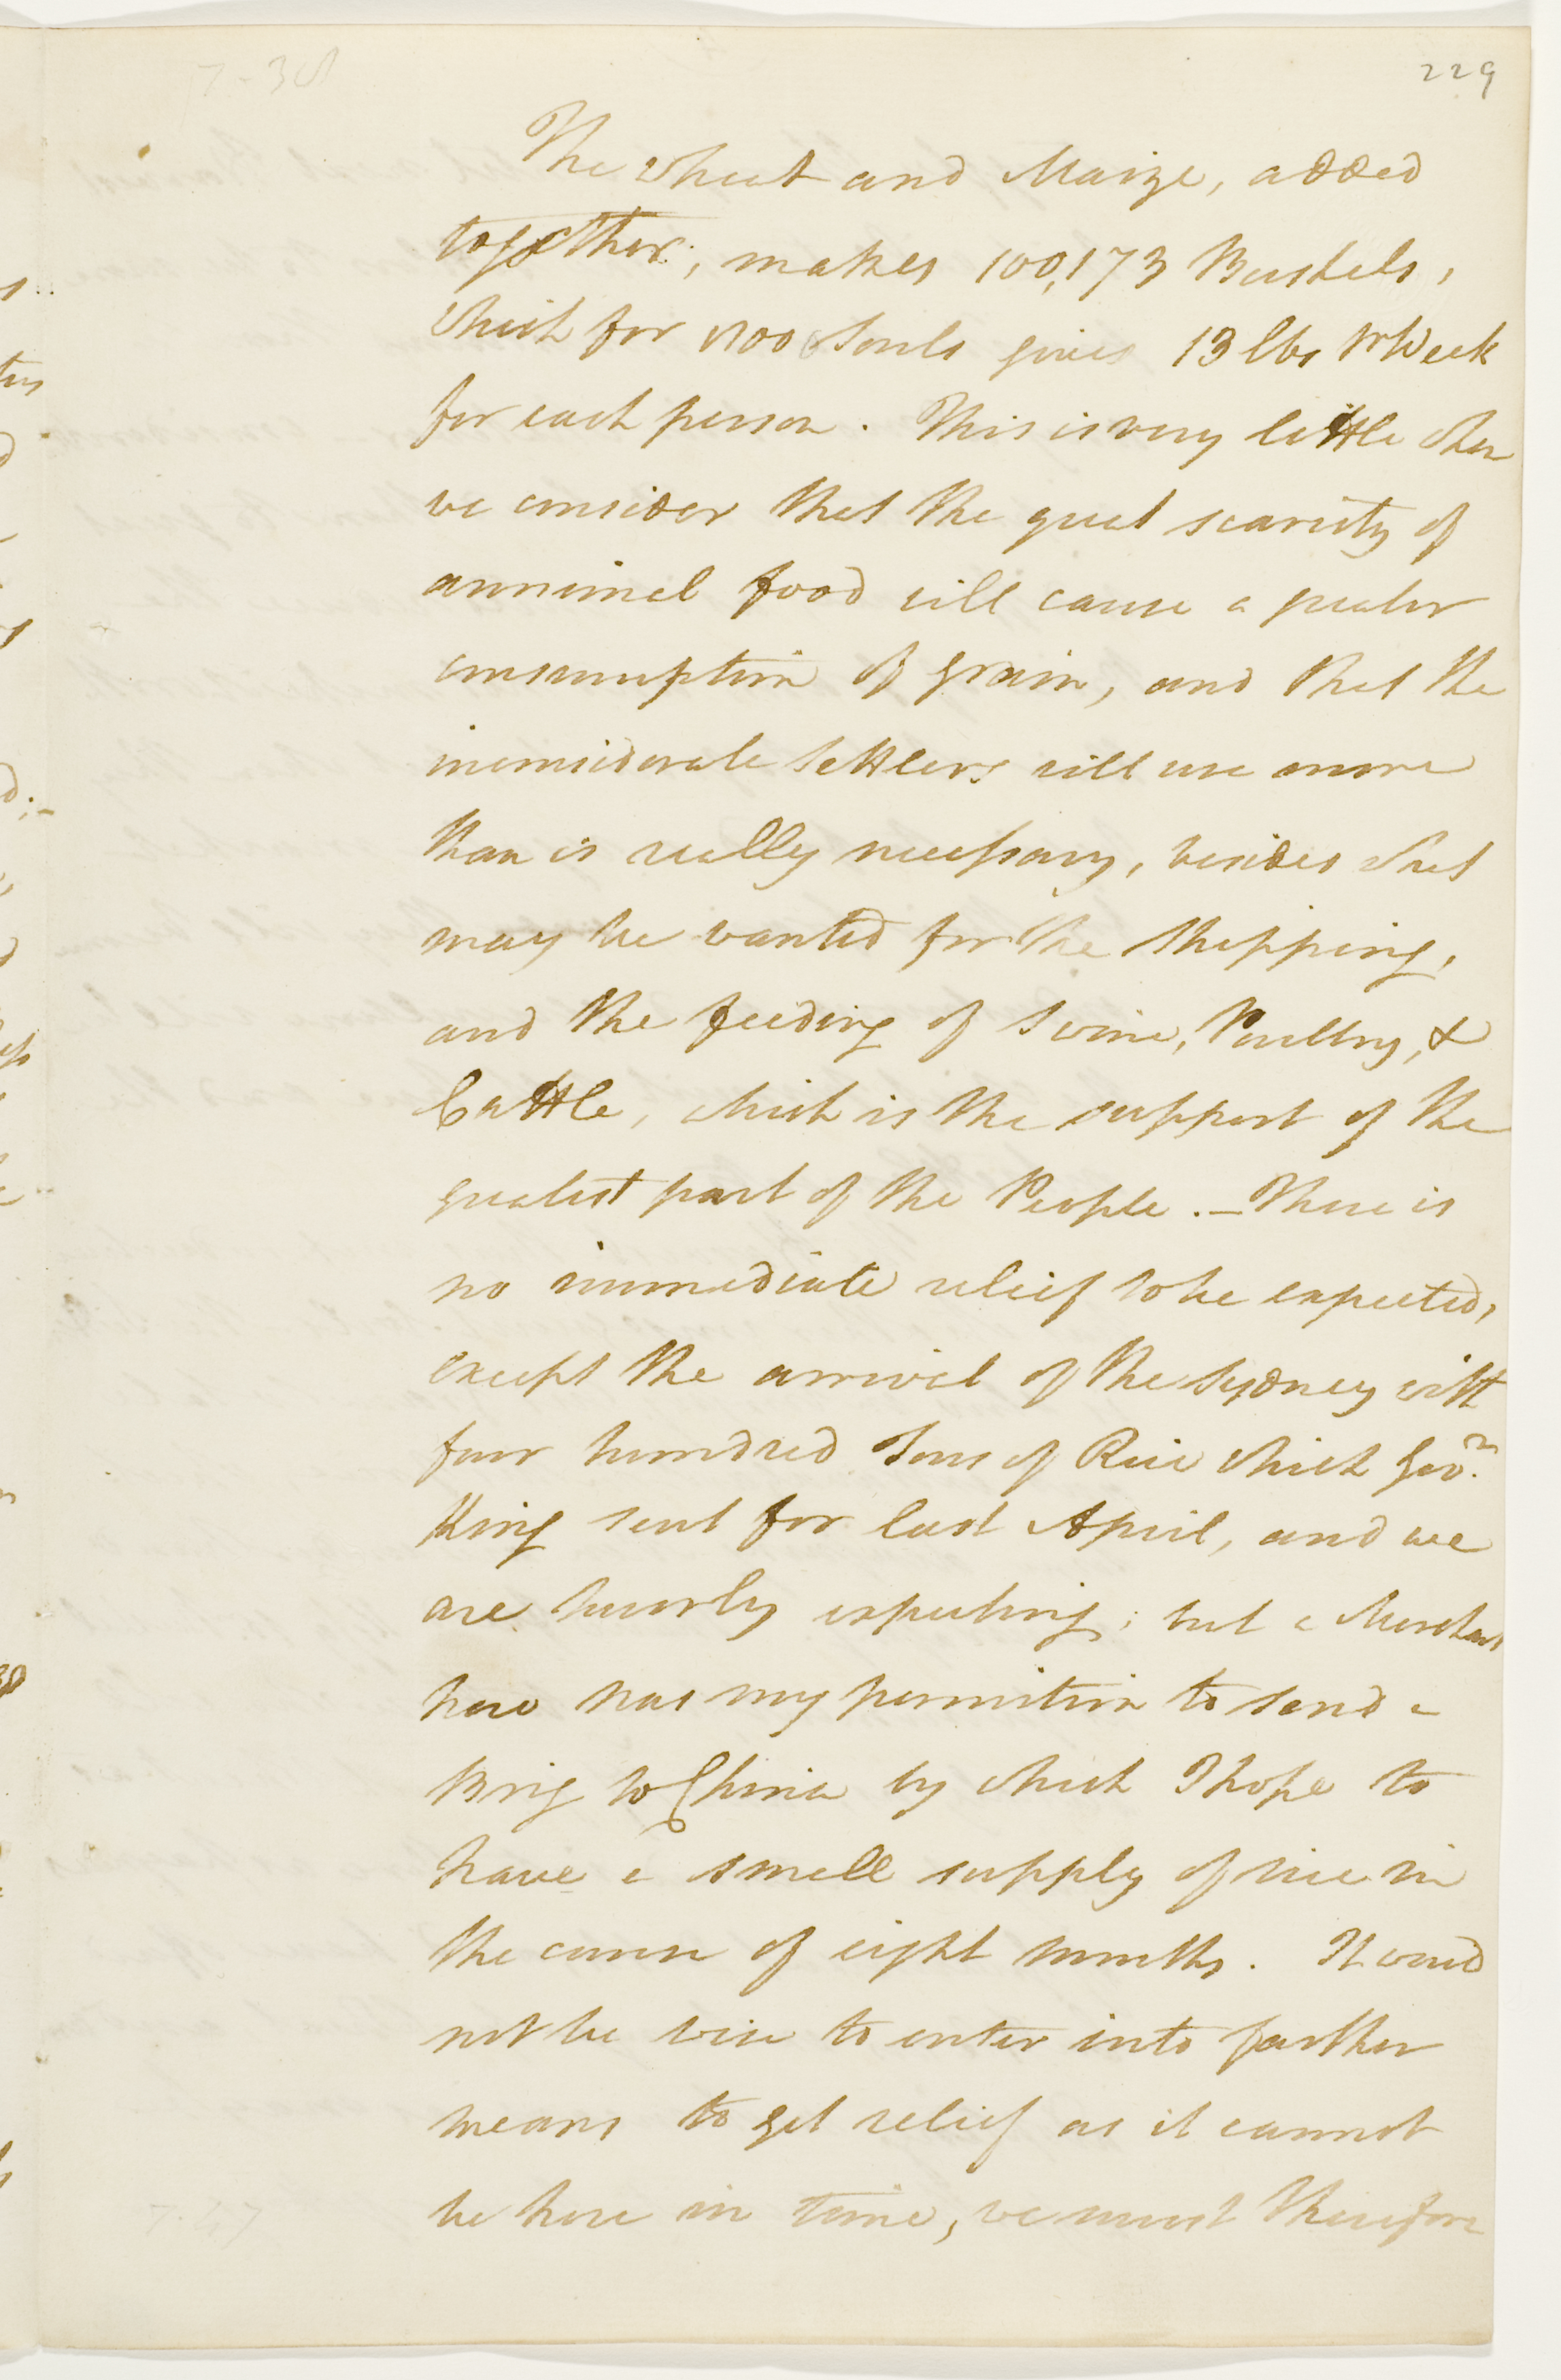 229
The wheat and Maize, added
together, makes 100,173 Bushels,
which for Souls gives 13 lbs Pr Week
for each person. This is very little when
we consider that the great scarcity of
annimal food will cause a greater
consumption of grain, and that the
inconsiderate Settlers will use more
than is really necessary, besides what
may be wanted for the Shipping,
and the feeding of Swine, Poultry, &
Cattle, which is the support of the
greatest part of the People. _ There is
no immediate relief to be expected,
except the arrival of the Sydney with
four hundred Tons of Rice which Govr.
King sent for last April, and we
are hourly expecting; but a Merchant
here has my permition to send a
Brig to China by which I hope to
have a small supply of rice in
the course of eight months. It would
not be wise to enter into farther
means to get relief as it cannot
be here in time, we must therefore